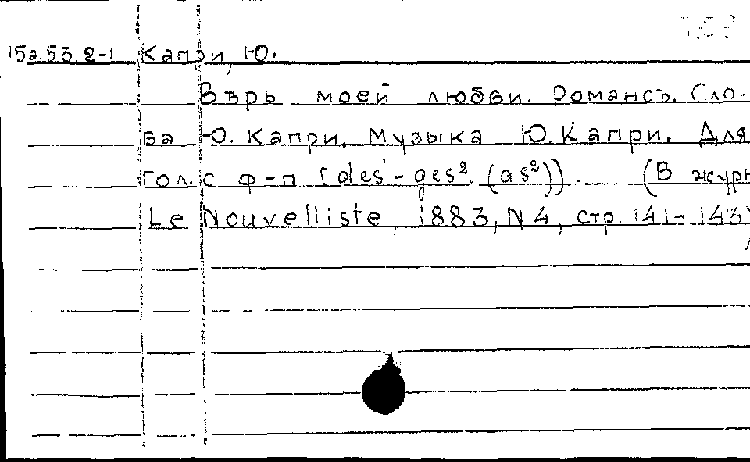 15а.53.2-1 Капри, Ю.
Вѣрь моей любви. Романсъ. Сло-
ва Ю. Капри. Музыка Ю. Капри. Для
гол. с ф-п [des¹-ges² (as²)]. (В журн
Le Nouvelliste, 1883, N 4, стр. 141-143)